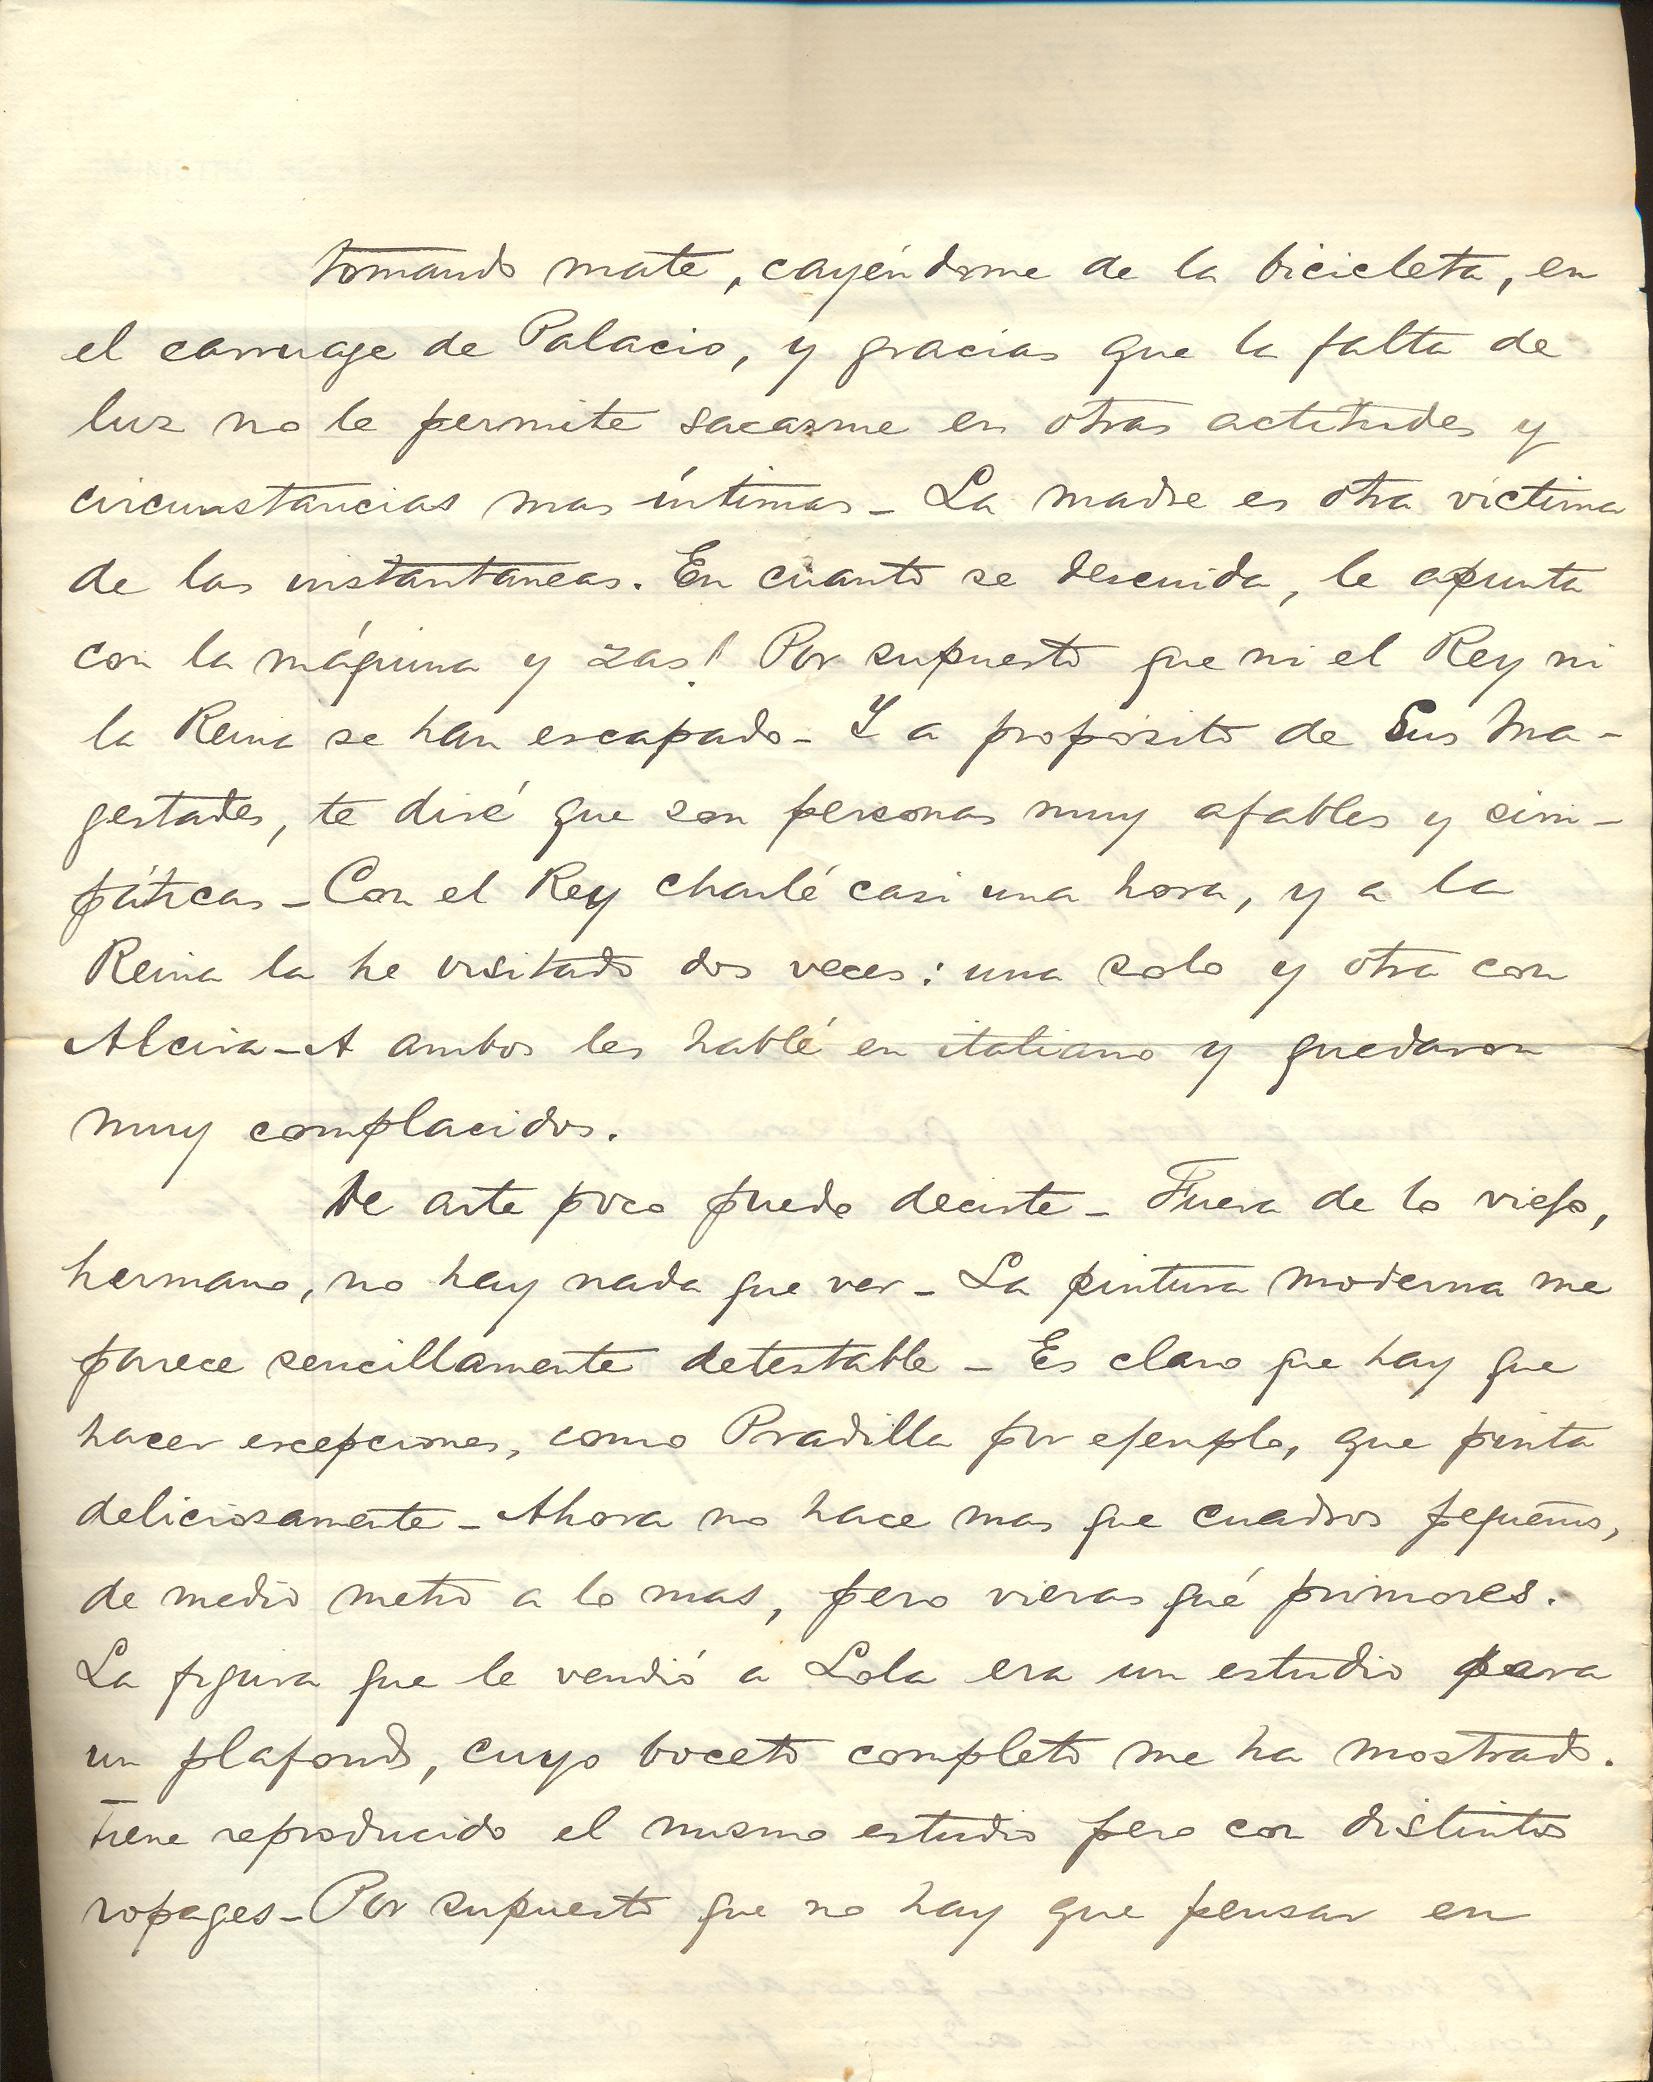 tomando mate, cayéndome de la bicicleta, en
el carruage de Palacio, y gracias que la falta de
luz no le permite sacarme en otras actitudes y
circunstancias mas íntimas_ La madre es otra víctima
de las instantaneas. En cuanto se descuida, le apunta
con la máquina y zas! Por supuesto que ni el Rey ni
la Reina se han escapado_ Y a propósito de Sus Ma-
gestades, te diré que son personas muy afables y sim-
páticas_ Con el Rey charlé casi una hora, y a la
Reina la he visitado dos veces: una solo y otra con
Alcira_ A ambos les hablé en italiano y quedaron
muy complacidos.
De arte poco puedo decirte_ Fuera de lo viejo,
hermano, no hay nada que ver_ La pintura moderna me
parece sencillamente detestable_ Es claro que hay que
hacer escepciones, como Pradilla por ejemplo, que pinta
deliciosamente_ Ahora no hace mas que cuadros pequeños,
de medio metro a lo mas, pero vieras qué primores.
La figura que le vendió a Lola era un estudio para
un plafond, cuyo boceto completo me ha mostrado.
Tiene reproducido el mismo estudio pero con distintos
ropages_ Por supuesto que no hay que pensar en